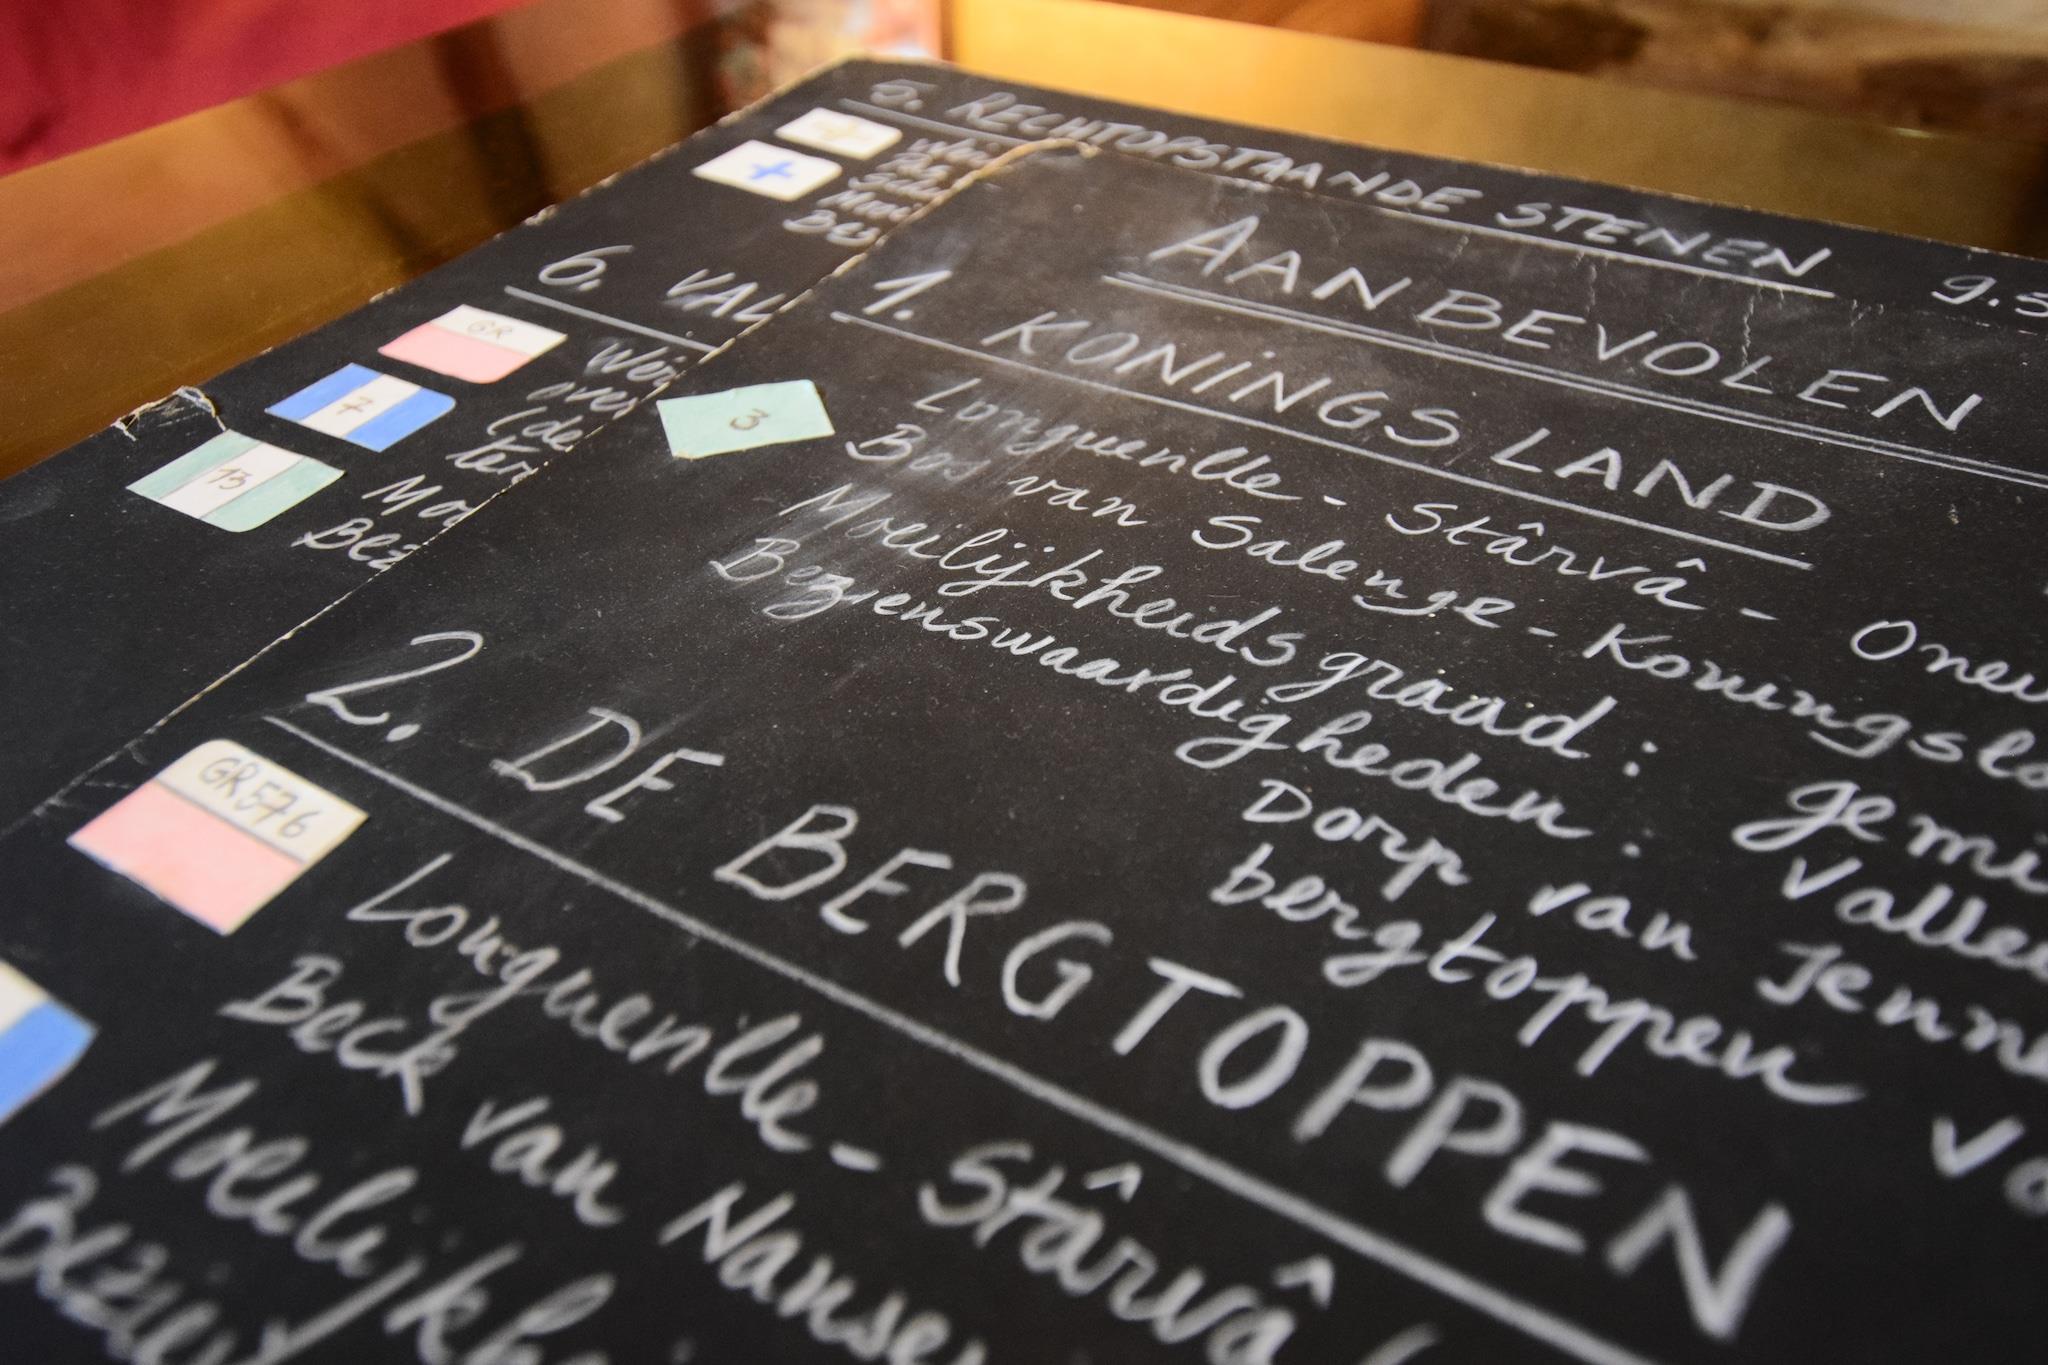 5. RECHTOPSTAANDE STENEN 9.5
6. VAL
GR
7
13
Moe
Bez
AANBEVOLEN
1. KONINGSLAND
3
Longueville - Stârvâ - Oneu
Bos van Salenge - Koningslo
Moeilijkheidsgraad: gemi
Bezienswaardigheden: Vallei
Dorp van Jenne
bergtoppen va
2. DE BERGTOPPEN
GR576
Longueville - Stârvâ
Beck van Nanse
Moeilijkhei
Bezie